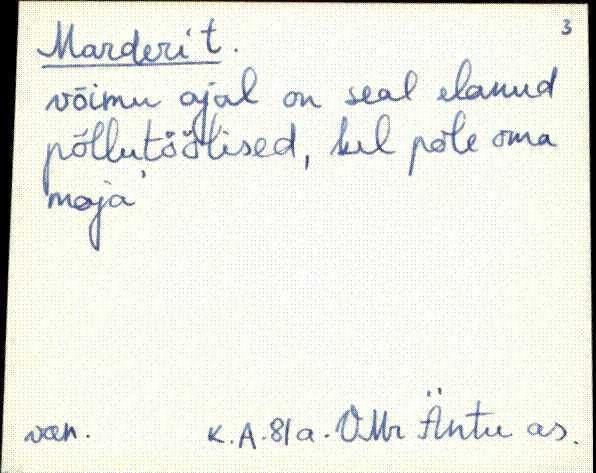 3
Marderi t.
võimu ajal on seal elanud
põllutöölised, kel pole oma
maja'
van. K.A.81a. VMr Äntu as.